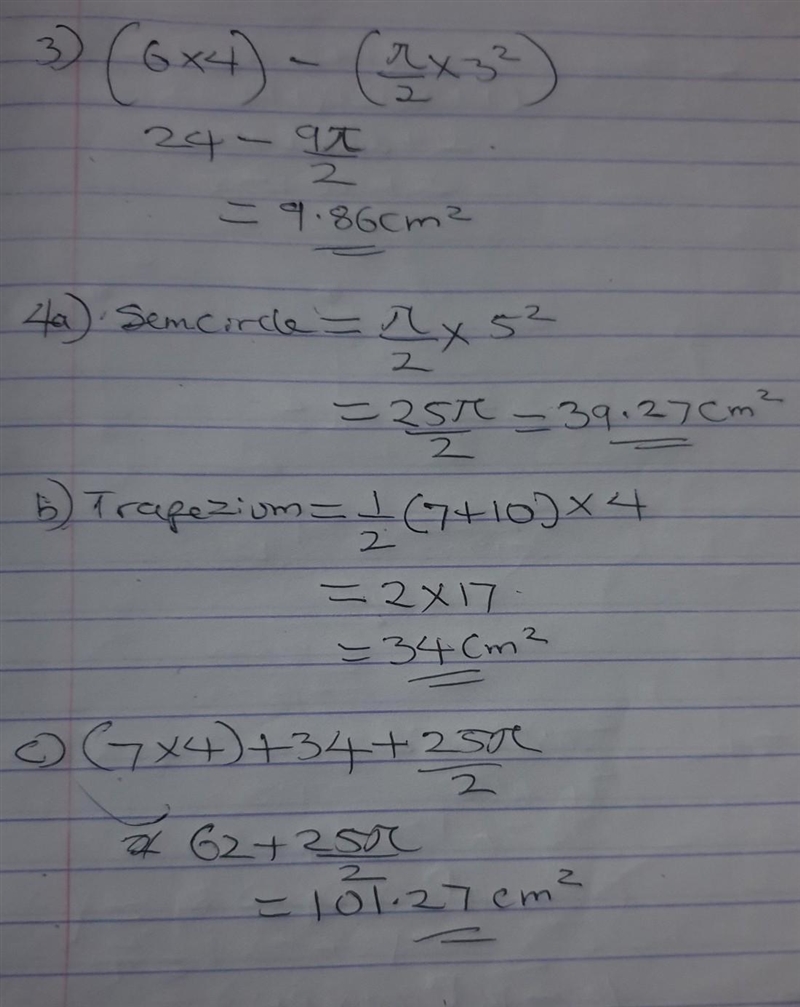 3) (6×4) − (π/2 × 3²)
24 − 9π/2
= 9.86cm²
4a) Semcircle = π/2 × 5²
= 25π/2 = 39.27cm²
b) Trapezium = 1/2 (7+10) × 4
= 2×17
= 34cm²
c) (7×4)+34+25π/2
62+25π/2
= 101.27 cm²